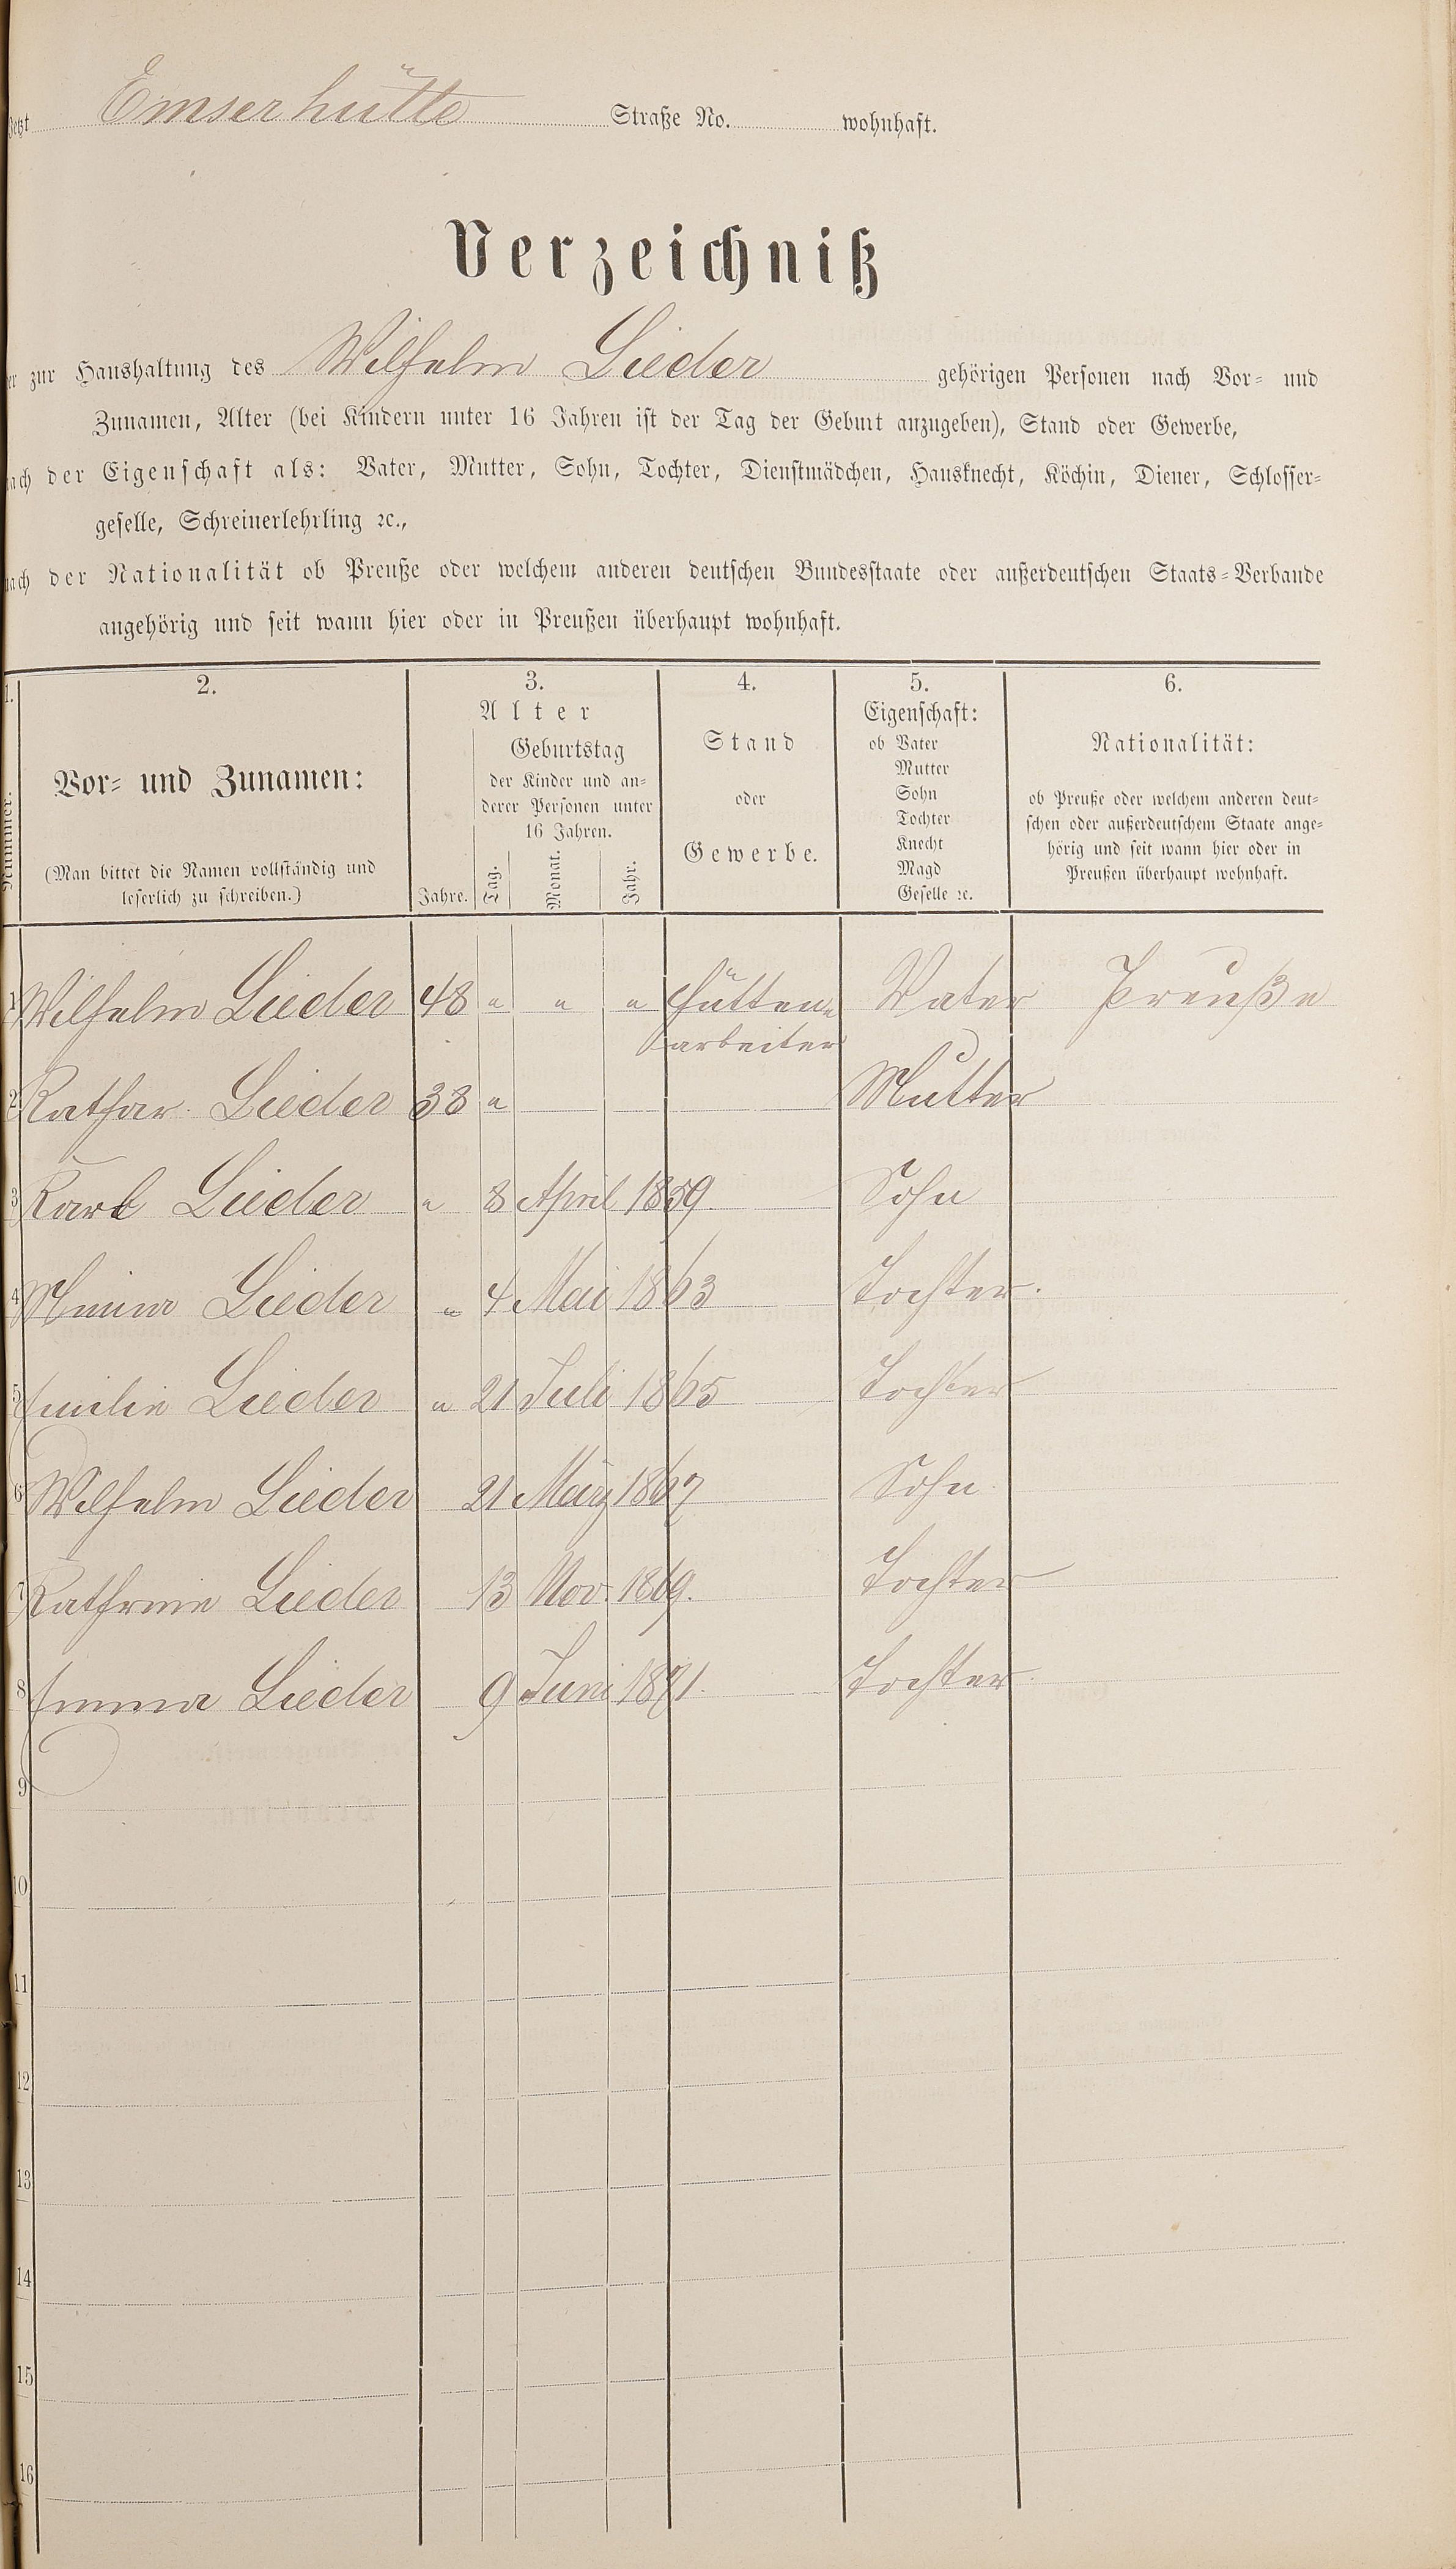 Jetzt Emserhütte Straße No. wohnhaft.
Verzeichniß
der zur Haushaltung des Wilhelm Lieder gehörigen Personen nach Vor- und
Zunamen, Alter (bei Kindern unter 16 Jahren ist der Tag der Geburt anzugeben), Stand oder Gewerbe,
nach der Eigenschaft als: Vater, Mutter, Sohn, Tochter, Dienstmädchen, Hausknecht, Köchin, Diener, Schlosser-
geselle, Schreinerlehrling ꝛc.,
nach der Nationalität ob Preuße oder welchem anderen deutschen Bundesstaate oder außerdeutschen Staats-Verbande
angehörig und seit wann hier oder in Preußen überhaupt wohnhaft.
1.
Nummer.
2.
Vor- und Zunamen:
(Man bittet die Namen vollständig und
leserlich zu schreiben.)
3.
Alter
Jahre.
Geburtstag
der Kinder und an-
derer Personen unter
16 Jahren.
Tag. Monat. Jahr.
4.
Stand
oder
Gewerbe.
5.
Eigenschaft:
ob Vater
Mutter
Sohn
Tochter
Knecht
Magd
Geselle ꝛc.
6.
Nationalität:
ob Preuße oder welchem anderen deut-
schen oder außerdeutschem Staate ange-
hörig und seit wann hier oder in
Preußen überhaupt wohnhaft.
1 Wilhelm Lieder 48 " " " Hütten= Vater Preuße
arbeiter
2 Kathar. Lieder 38 " Mutter
3 Karl Lieder " 8 April 1859. Sohn
4 Minna Lieder " 4 Mai 1863 Tochter.
5 Emilie Lieder " 21 Juli 1865 Tochter
6 Wilhelm Lieder 21 März 1867 Sohn
7 Kathrine Lieder 13 Nov. 1869. Tochter
8 Emma Lieder 9 Juni 1871. Tochter
9
10
11
12
13
14
15
16